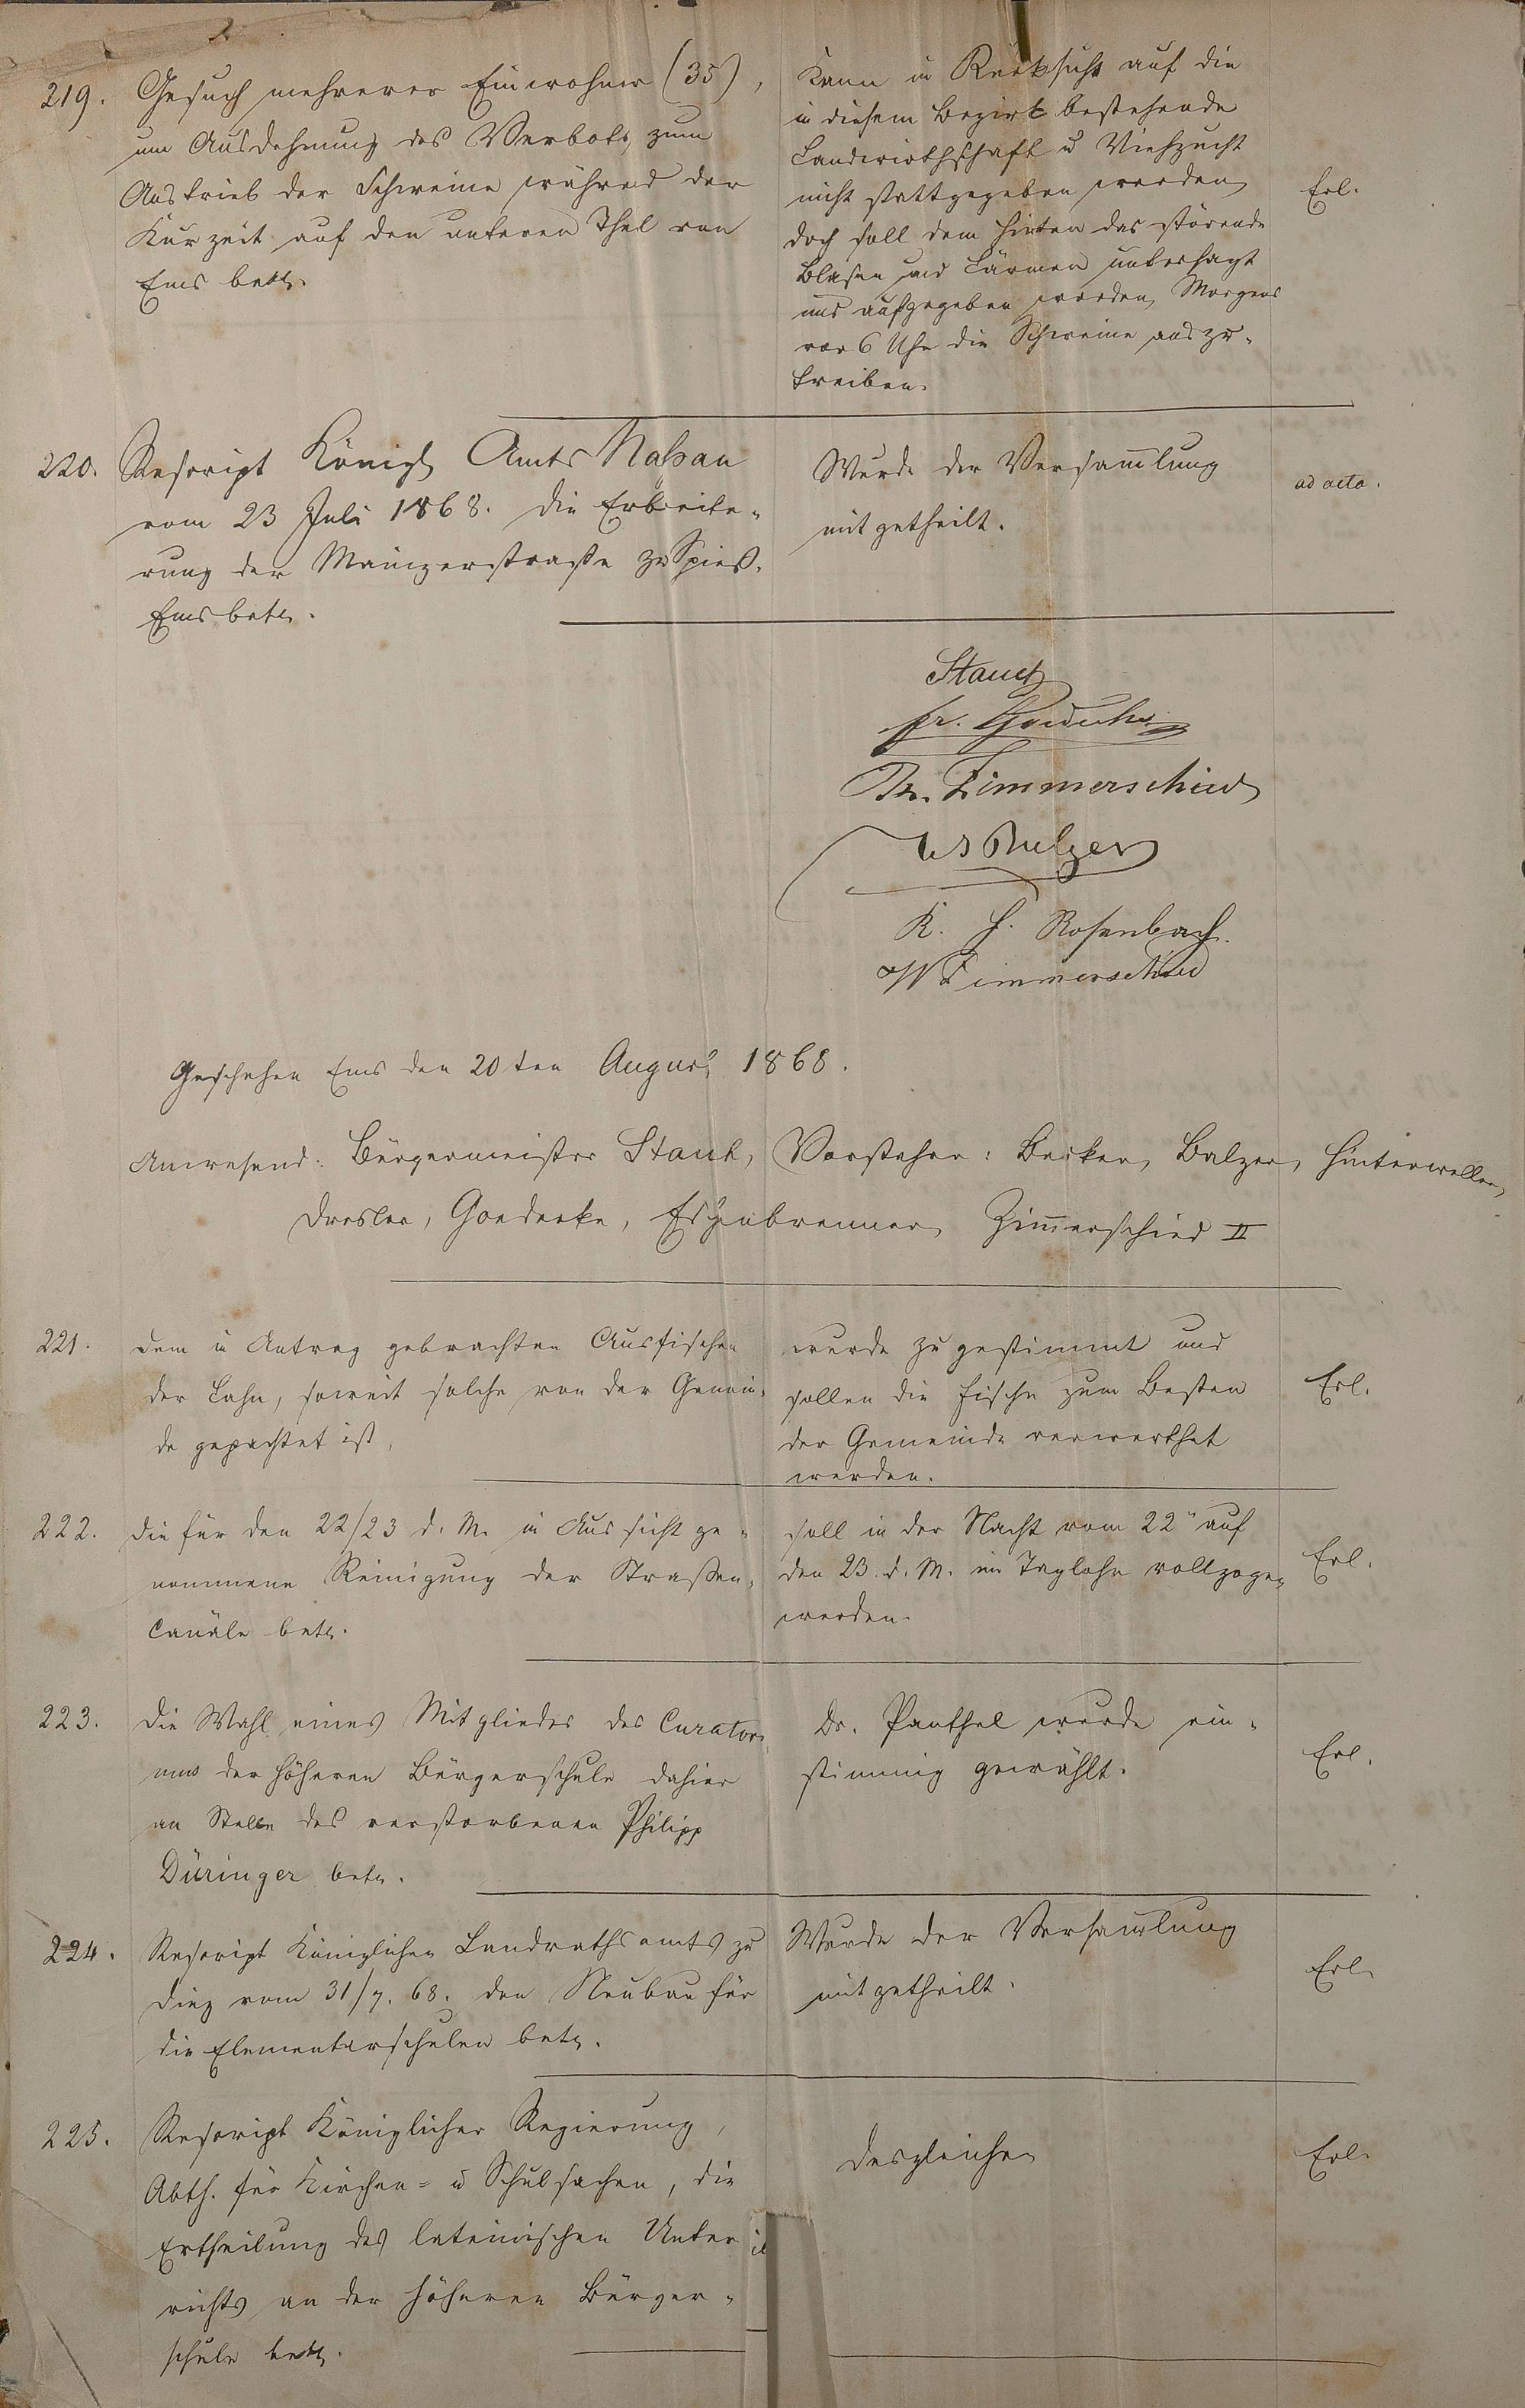 219. Gesuch mehrerer Einwohner (35),
um Ausdehnung des Verbots, zum
Austrieb der Schweine während der
Kurzeit auf den unteren Theil von
Ems betr.
Kann in Rücksicht auf die
in diesem Bezirk bestehende
Landwirthschaft u Viehzucht
nicht stattgegeben werden,
doch soll dem Hirten das störende
Blasen und Lärmen untersagt
und aufgegeben werden, Morgens
vor 6 Uhr die Schweine auszu-
treiben.
Erl.
220. Rescript Königl Amts Naßau
vom 23 Juli 1868. die Erbreite-
rung der Mainzerstraße zu Spieß-
Ems betr.
Wurde der Versam̅lung
mitgetheilt.
ad acta.
Staudt
Fr.
Zimmerschied
Balzer
K. H. Rosenbach.
W Zimmerschied
Geschehen Ems den 20ten August 1868.
Anwesend: Bürgermeister Staudt, Vorsteher: Becker, Balzer, Hinterweller,
Dresler, Goedecke, Eschenbrenner, Zim̅erschied II
221. Dem in Antrag gebrachten Ausfischen
der Lahn, soweit solche von der Gemein-
de gepachtet ist,
wurde zugestimmt und
sollen die Fische zum Besten
der Gemeinde verwerthet
werden.
Erl.
222. Die für den 22/23 d. M. in Aussicht ge-
nommene Reinigung der Straßen-
Canäle betr.
soll in der Nacht vom 22" auf
den 23. d. M. im Taglohn vollzogen
werden.
Erl.
223. Die Wahl eines Mitgliedes des Curatori-
ums der höheren Bürgerschule dahier
an Stelle des verstorbenen Philipp
Düringer betr.
Dr. Panthel wurde ein-
stimmig gewählt.
Erl.
224. Rescript Königlichen Landrathsamts zu
Diez vom 31/7. 68. den Neubau für
die Elementarschulen betr.
Wurde der Versam̅lung
mitgetheilt.
Erl.
225. Rescript Königlicher Regierung,
Abth. für Kirchen- u Schulsachen, die
Ertheilung des lateinischen Unter
richts an der höheren Bürger-
schule betr.
desgleichen
Erl.